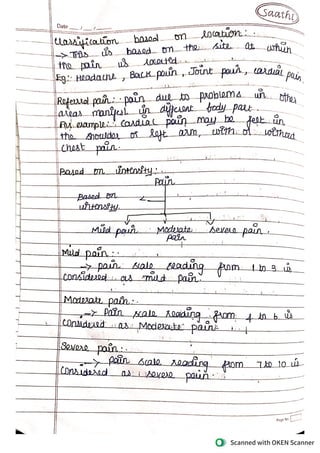 Saathi
Date ___/___/___
Classification based on location :-
-> This is based on the site at which
the pain is located.
Eg: Headache, Back pain, Joint pain, cardial pain.
Referred pain:- pain due to problems in other
areas manifest in different body part.
For example:- Cardial pain may be fest in
the shoulder or left arm, with or without
chest pain.
Based on intensity:-
Pain
Based on
intensity.
Mild pain Moderate Severe pain.
pain
Mild pain :-
-> pain scale reading from 1 to 3 is
considered as mild pain.
Moderate pain:-
-> Pain scale reading from 4 to 6 is
considered as Moderate pain.
Severe pain :-
-> Pain scale reading from 7 to 10 is
Considered as severe pain.
Page No.
Scanned with OKEN Scanner